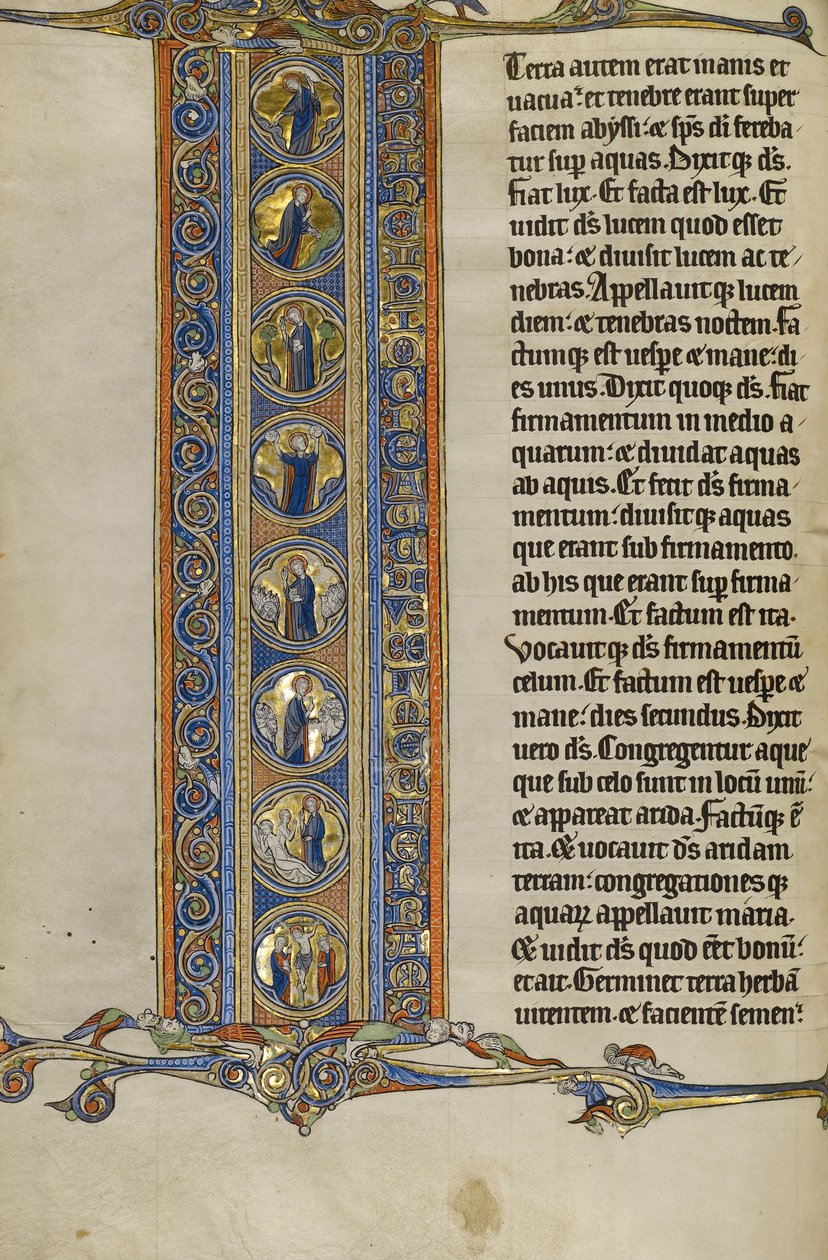 IN PRINCIPIO CREAUIT DEUS CELUM ET TERRAM
Terra autem erat inanis et
uacua: et tenebre erant super
faciem abyssi: et sps di fereba-
tur sup aquas. Dixitq; ds.
Fiat lux. Et facta est lux. Et
uidit ds lucem quod esset
bona: et diuisit lucem ac te-
nebras. Appellauitq; lucem
diem: et tenebras noctem. Fa-
ctumq; est uespe et mane: di-
es unus. Dixit quoq; ds. fiat
firmamentum in medio a-
quarum: et diuidat aquas
ab aquis. Et fecit ds firma-
mentum: diuisitq; aquas
que erant sub firmamento.
ab his que erant sup firma-
mentum. Et factum est ita.
Vocauitq; ds firmamentū
celum. Et factum est uespe et
mane: dies secundus. Dixit
uero ds. Congregentur aque
que sub celo sunt in locū unū:
et appareat arida. Factūq; ē
ita. Et uocauit ds aridam
terram: congregationesq;
aquaꝝ appellauit maria.
Et uidit ds quod eēt bonū:
et ait. Germinet terra herbā
uirentem. et facientē semen: